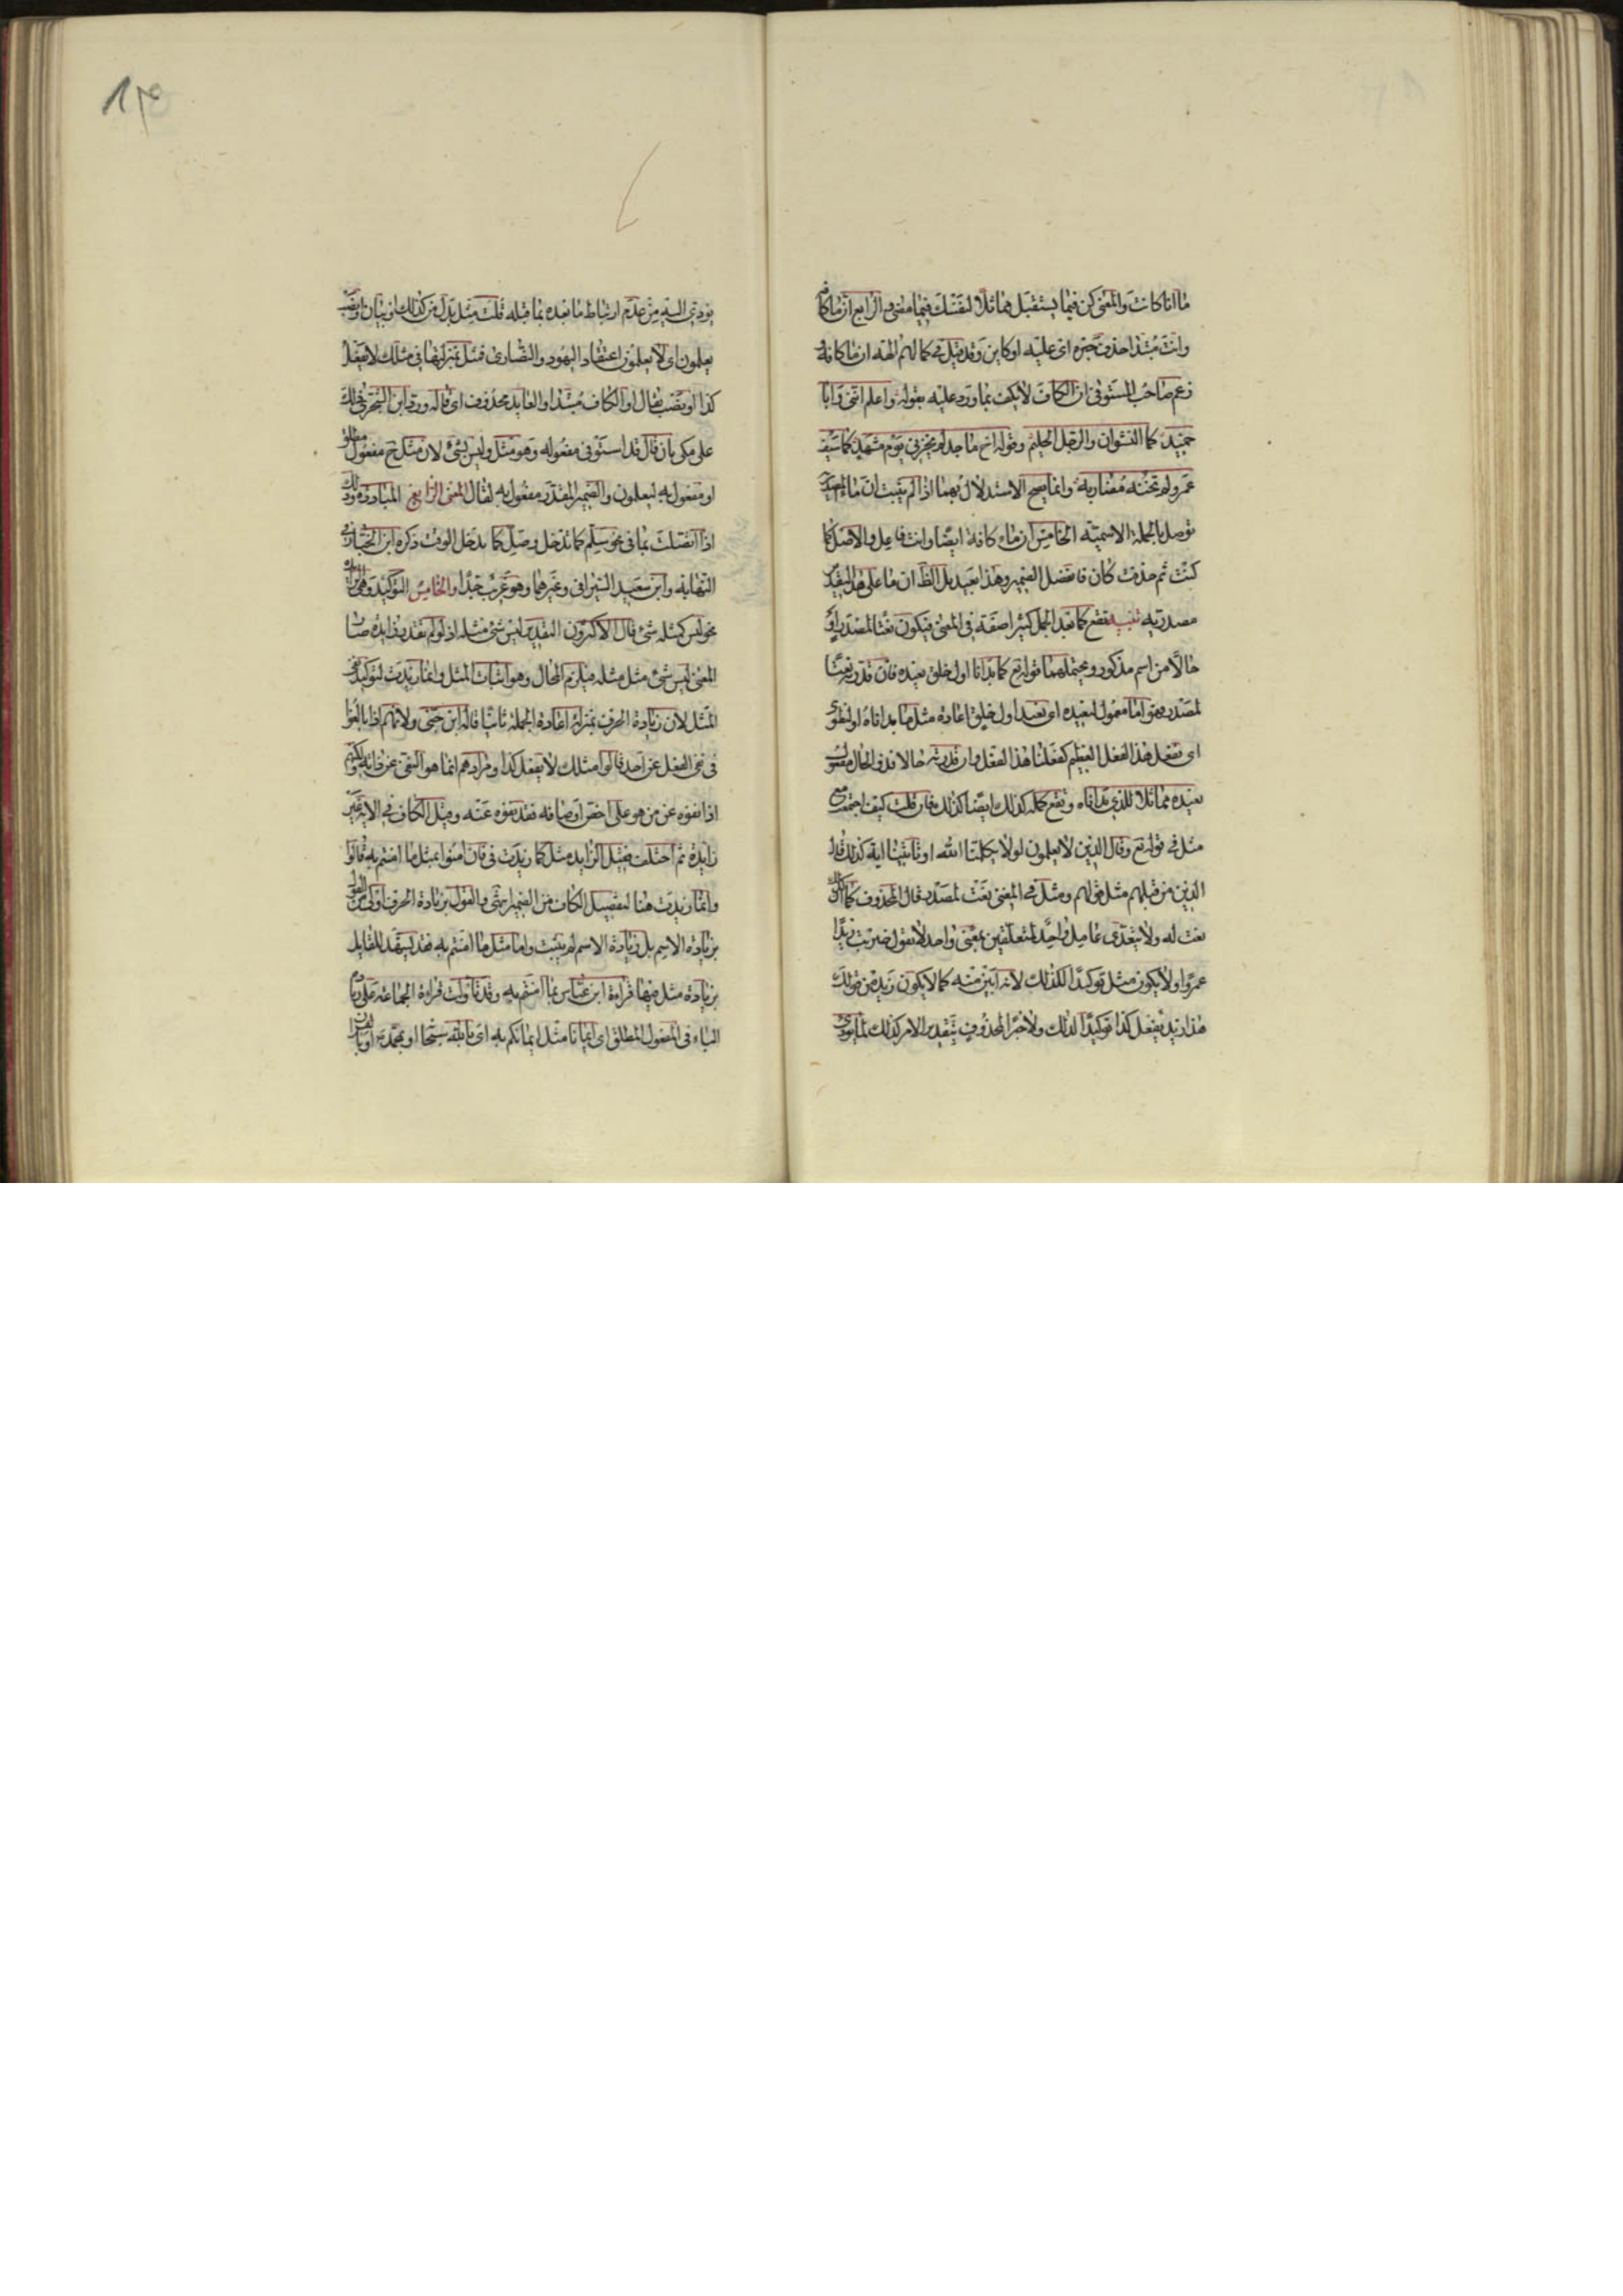 ما انا كانت والمعنى كن فيما يستقبل مماثلا لنفسك فيما مضى الرابع ان ما كافة
وانت مبتدا حذف خبره اى عليه او كاين وقد قيل فى كما لهم الهة ان ما كافة
زعم صاحب المستوفى ان الكاف لا يكف بما ورد عليه بقوله واعلم اننى وابا
حميد كما النشوان والرجل الحليم وقوله اخ ماجد لم يخزنى يوم مشهد كما سيف
عمرو لم تخنه مضاربه وانما يصح الاستدلال بهما اذا لم يثبت ان ما المصدرية
توصل بالجملة الاسمية الخامس ان ما كافة ايضا وانت فاعل والاصل كما
كنت ثم حذف كان فانفصل الضمير وهذا بعيد بل الظ ان ما على هذا التقدير
مصدرية تنبيه تقع كما بعد الجمل كثيرا صفة فى المعنى فيكون نعتا لمصدر او
حالا من اسم مذكور ويحتملهما قوله تع كما بدانا اول خلق نعيده فان قدر نعتا
لمصدر فهو اما معمول لنعيده اى نعيد اول خلق اعادة مثل ما بداناه او لنطوى
اى نفعل هذا الفعل العظيم كفعلنا هذا الفعل وان قدرته حالا فذو الحال مفعول
نعيده مماثلا للذى بداناه وتقع كلمة كذلك ايضا كذلك فان قلت كيف اجتمعت مع
مثل فى قوله تع وقال الذين لا يعلمون لولا يكلمنا الله او تاتينا اية كذلك قال
الذين من قبلهم مثل قولهم ومثل فى المعنى نعت لمصدر قال المحذوف كما ان كذلك
نعت له ولا يتعدى عامل واحد لمتعلقين بمعنى واحد لا تقول ضربت زيدا
عمروا ولا يكون مثل توكيدا لكذلك لانه ابين منه كما لا يكون زيد من قولك
هذا زيد يفعل كذا توكيدا لذلك ولا خبرا لمحذوف بتقدير الامر كذلك لما يودى
يودى اليه من عدم ارتباط ما بعده بما قبله قلت مثل بدل من كذلك او بيان او نصب
يعلمون اى لا يعلمون اعتقاد اليهود والنصارى فمثل بمنزلتها فى مثلك لا يفعل
كذا او نصب بقال او الكاف مبتدا والعايد محذوف اى قاله ورد ابن الشجرى ذلك
على مكى بان قال قد استوفى مفعوله وهو مثل وليس بشئ لان مثل ح مفعول مطلق
او مفعول به ليعلمون والضمير المقدر مفعول به لقال المعنى الرابع المبادرة وذلك
اذا اتصلت بما فى نحو سلم كما تدخل وصل كما يدخل الوقت ذكره ابن الخباز فى
النهاية وابو سعيد السيرافى وغيرهما وهو غريب جدا والخامس التوكيد وهى الزايدة
نحو ليس كمثله شئ قال الاكثرون التقدير ليس شئ مثله اذ لو لم تقدر زايدة صار
المعنى ليس شئ مثل مثله فيلزم المحال وهو اثبات المثل وانما زيدت لتوكيد نفى
المثل لان زيادة الحرف بمنزلة اعادة الجملة ثانيا قاله ابن جنى ولانهم اذا بالغوا
فى نفى الفعل عن احد قالوا مثلك لا يفعل كذا ومرادهم انما هو النفى عن ذاته ولكنهم
اذا نفوه عن من هو على اخص اوصافه فقد نفوه عنه وقيل الكاف فى الاية غير
زايدة ثم اختلف فقيل الزايدة مثل كما زيدت فى فان امنوا بمثل ما امنتم به قالوا
وانما زيدت هنا لتفصيل الكاف من الضمير انتهى والقول بزيادة الحرف اولى من القول
بزيادة الاسم بل زيادة الاسم لم يثبت واما مثل ما امنتم به فقد يشهد للقايل
بزيادة مثل فيها قراءة ابن عباس بما امنتم به وقد تاولت قراءة الجماعة على زيادة
الباء فى المفعول المطلق اى ايمانا مثل ايمانكم به اى بالله سبحانه او بمحمد او بالقران